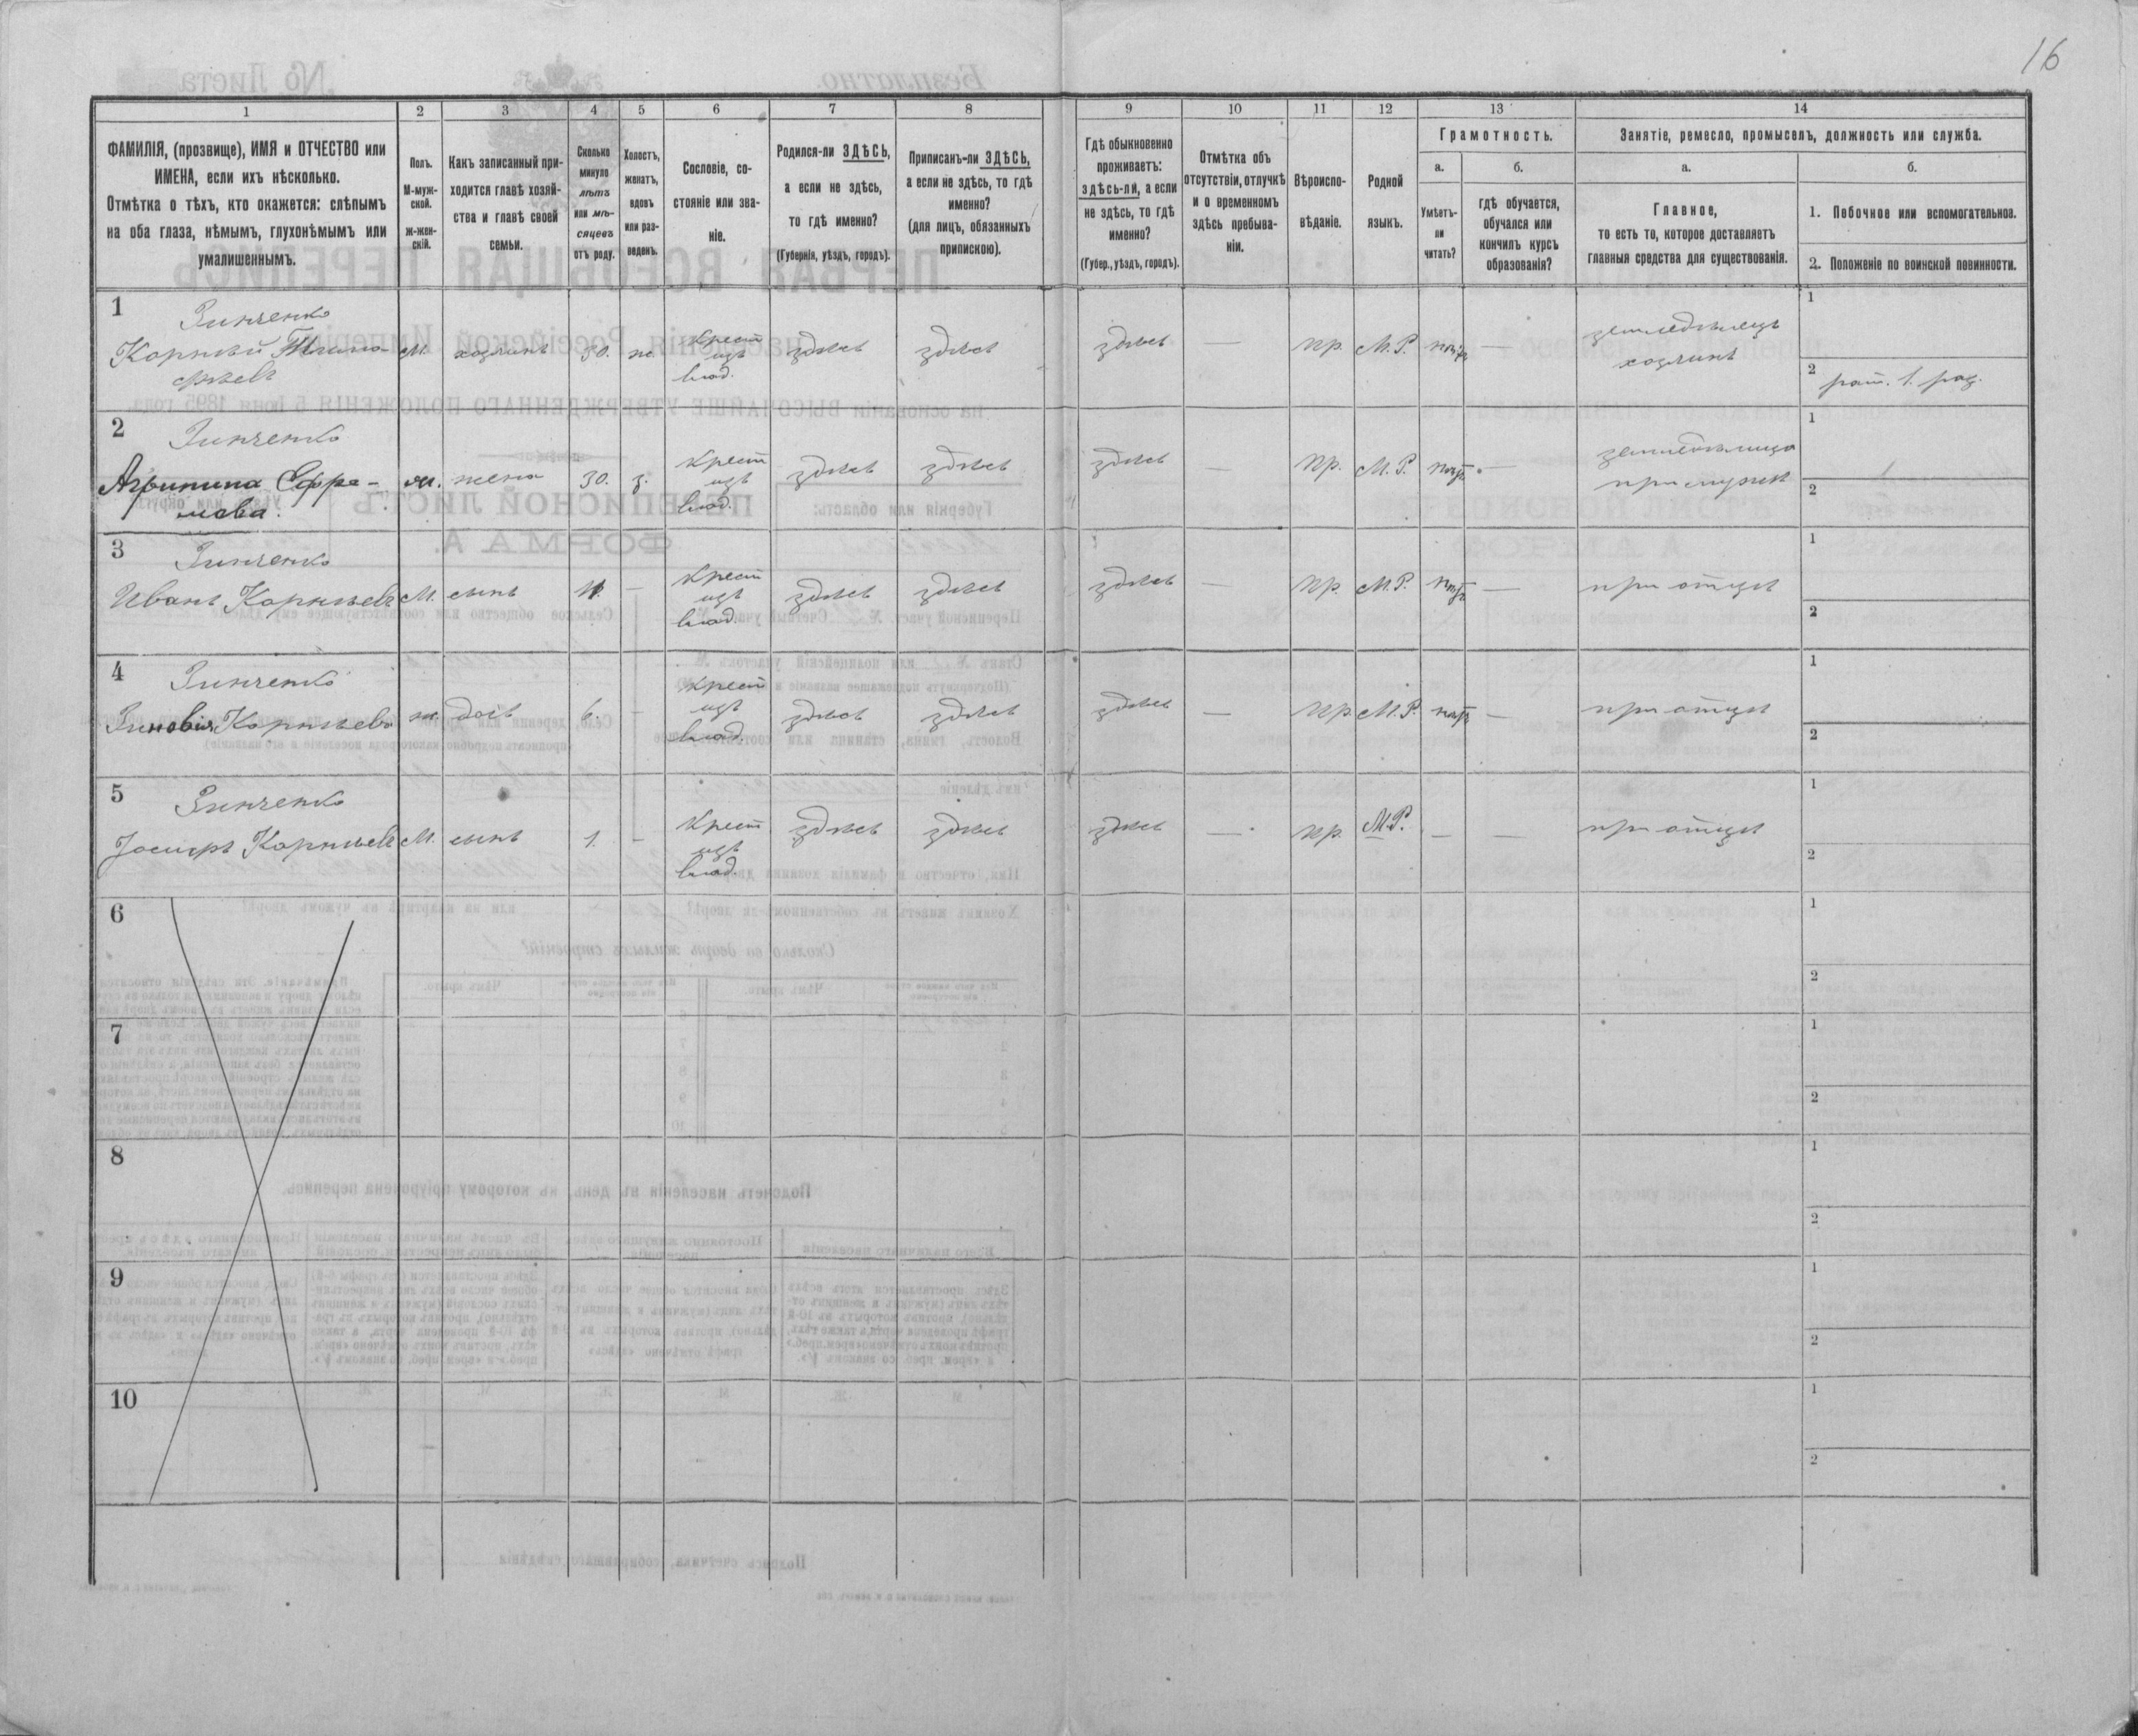 16
1
2
3
4
5
6
7
8
9
10
11
12
13
14
ФАМИЛІЯ, (прозвище), ИМЯ и ОТЧЕСТВО или
ИМЕНА, если ихъ нѣсколько.
Отмѣтка о тѣхъ, кто окажется: слѣпымъ
на оба глаза, нѣмымъ, глухонѣмымъ или
умалишеннымъ.
Полъ.
М-муж-
ской.
ж-жен-
скій.
Какъ записанный при-
ходится главѣ хозяй-
ства и главѣ своей
семьи.
Сколько
минуло
лѣтъ
или мѣ-
сяцевъ
отъ роду.
Холостъ,
женатъ,
вдовъ
или раз-
веденъ.
Сословіе, со-
стояніе или зва-
ніе.
Родился-ли ЗДѢСЬ,
а если не здѣсь,
то гдѣ именно?
(Губернія, уѣздъ, городъ).
Приписанъ-ли ЗДѢСЬ,
а если не здѣсь, то гдѣ
именно?
(для лицъ, обязанныхъ
припискою).
Гдѣ обыкновенно
проживаетъ:
здѣсь-ли, а если
не здѣсь, то гдѣ
именно?
(Губер., уѣздъ, городъ).
Отмѣтка объ
отсутствіи, отлучкѣ
и о временномъ
здѣсь пребыва-
ніи.
Вѣроиспо-
вѣданіе.
Родной
языкъ.
Грамотность.
а.
б.
Умѣетъ-
ли
читать?
гдѣ обучается,
обучался или
кончилъ курсъ
образованія?
Занятіе, ремесло, промыселъ, должность или служба.
а.
б.
Главное,
то есть то, которое доставляетъ
главныя средства для существованія.
1. Побочное или вспомогательное.
2. Положеніе по воинской повинности.
1
Зинченко
Корнѣй Тимо-
фѣевъ
М. хозяинъ 30. ж.
крест
изъ
влад.
здѣсь здѣсь здѣсь — пр. М.Р. —
земледѣлецъ
хозяинъ
1
2 рат. 1. раз.
2
Зинченко
Агрипина Ефре-
мова.
ж. жена 30. з.
крест
изъ
влад.
здѣсь здѣсь здѣсь — пр. М.Р. —
земледѣлица
при мужѣ
1
2
3
Зинченко
Иванъ Корнѣевъ М. сынъ —
крест
изъ
влад.
здѣсь здѣсь здѣсь — пр. М.Р. — при отцѣ
1
2
4
Зинченко
Зиновія Корнѣева ж. дочь 6. —
крест
изъ
влад.
здѣсь здѣсь здѣсь — пр. М.Р. — при отцѣ
1
2
5
Зинченко
Іосифъ Корнѣевъ М. сынъ 1. —
крест
изъ
влад.
здѣсь здѣсь здѣсь — пр. М.Р. — — при отцѣ
1
2
6
1
2
7
1
2
8
1
2
9
1
2
10
1
2